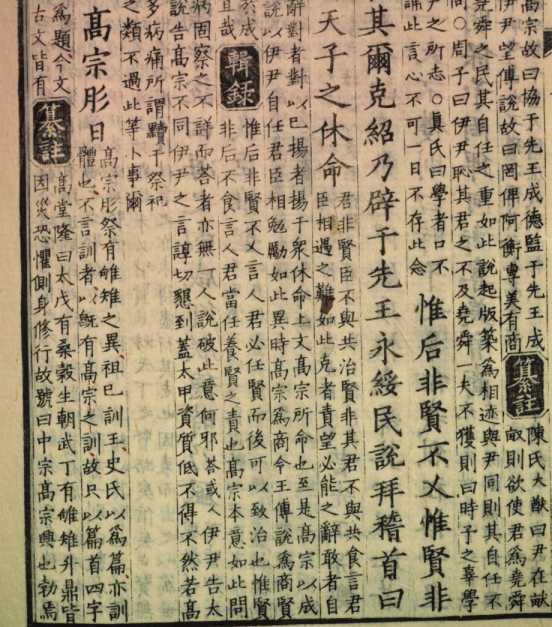 高宗故曰協于先王成德監于先王
伊尹望傅說故曰罔俾阿衡專美有商
纂註
陳氏大猷曰尹在畎
畝則欲使君爲堯舜
堯舜之民其自任之重如此說起版築爲相迹與尹同則其自任不
同○周子曰伊尹恥其君之不及堯舜一夫不獲則曰時予之辜學
尹之所志○真氏曰學者口不
誦此言心不可一日不存此念
惟后非賢不乂惟賢非
其爾克紹乃辟于先王永綏民說拜稽首曰
天子之休命
君非賢臣不與共治賢非其君不與共食言君
臣相遇之難如此克者責望必能之辭敢者自
辭對者對以已揚者揚于衆休命上文高宗所命也至是高宗以成
說以伊尹自任君臣相勉勵如此異時高宗爲商令王傅說爲商賢
於成
且哉
輯錄
惟后非賢不乂言人君必任賢而後可以致治也惟賢
非后不食言人君當任養賢之責也高宗本意如此問
病固察之不詳而荅者亦無一人說破此意何邪荅或人伊尹告太
說告高宗不同伊尹之言諄切懇到蓋太甲資質低不得不然若高
多病痛所謂黷于祭祀
之類不過此等小事爾
高宗肜日
高宗肜祭有雊雉之異祖己訓王史氏以爲篇亦訓
體也不言訓者以既有高宗之訓故只以篇首四字
爲題今文
古文皆有
纂註
高堂隆曰太戊有桑穀生朝武丁有雊雉升鼎皆
因災恐懼側身修行故號曰中宗高宗興也勃焉